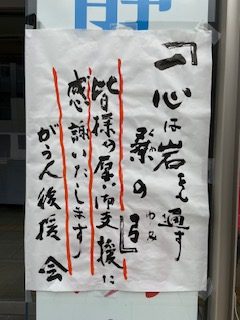 『一心は岩をも通す
桑の弓』
くわ
ゆみ
皆様の厚い御支援に
感謝いたします
がうん後援会